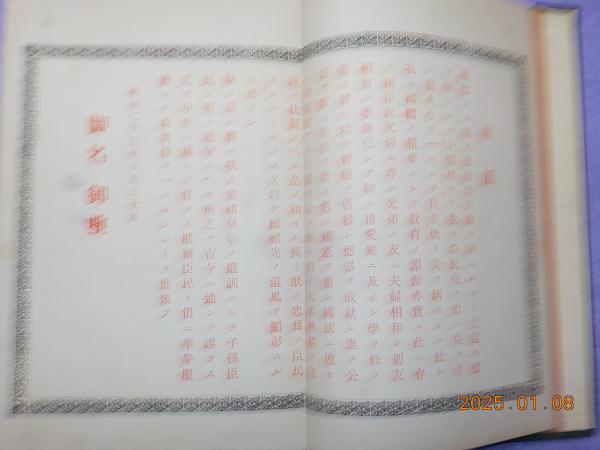 勅語
朕惟フニ我カ皇祖皇宗國ヲ肇ムルコト宏遠ニ德
ヲ樹ツルコト深厚ナリ我カ臣民克ク忠ニ克ク孝
ニ億兆心ヲ一ニシテ世世厥ノ美ヲ濟セルハ此レ
我カ國體ノ精華ニシテ教育ノ淵源亦實ニ此ニ存
ス爾臣民父母ニ孝ニ兄弟ニ友ニ夫婦相和シ朋友
相信シ恭儉己レヲ持シ博愛衆ニ及ホシ學ヲ修メ
業ヲ習ヒ以テ智能ヲ啓發シ德器ヲ成就シ進テ公
益ヲ廣メ世務ヲ開キ常ニ國憲ヲ重シ國法ニ遵ヒ
一旦緩急アレハ義勇公ニ奉シ以テ天壤無窮ノ皇
運ヲ扶翼スヘシ是ノ如キハ獨リ朕カ忠良ノ臣民
タルノミナラス又以テ爾祖先ノ遺風ヲ顯彰スル
ニ足ラン
斯ノ道ハ實ニ我カ皇祖皇宗ノ遺訓ニシテ子孫臣
民ノ俱ニ遵守スヘキ所之ヲ古今ニ通シテ謬ラス
之ヲ中外ニ施シテ悖ラス朕爾臣民ト俱ニ拳拳服
膺シテ咸其德ヲ一ニセンコトヲ庶幾フ
明治二十三年十月三十日
御名 御璽
2025.01.08